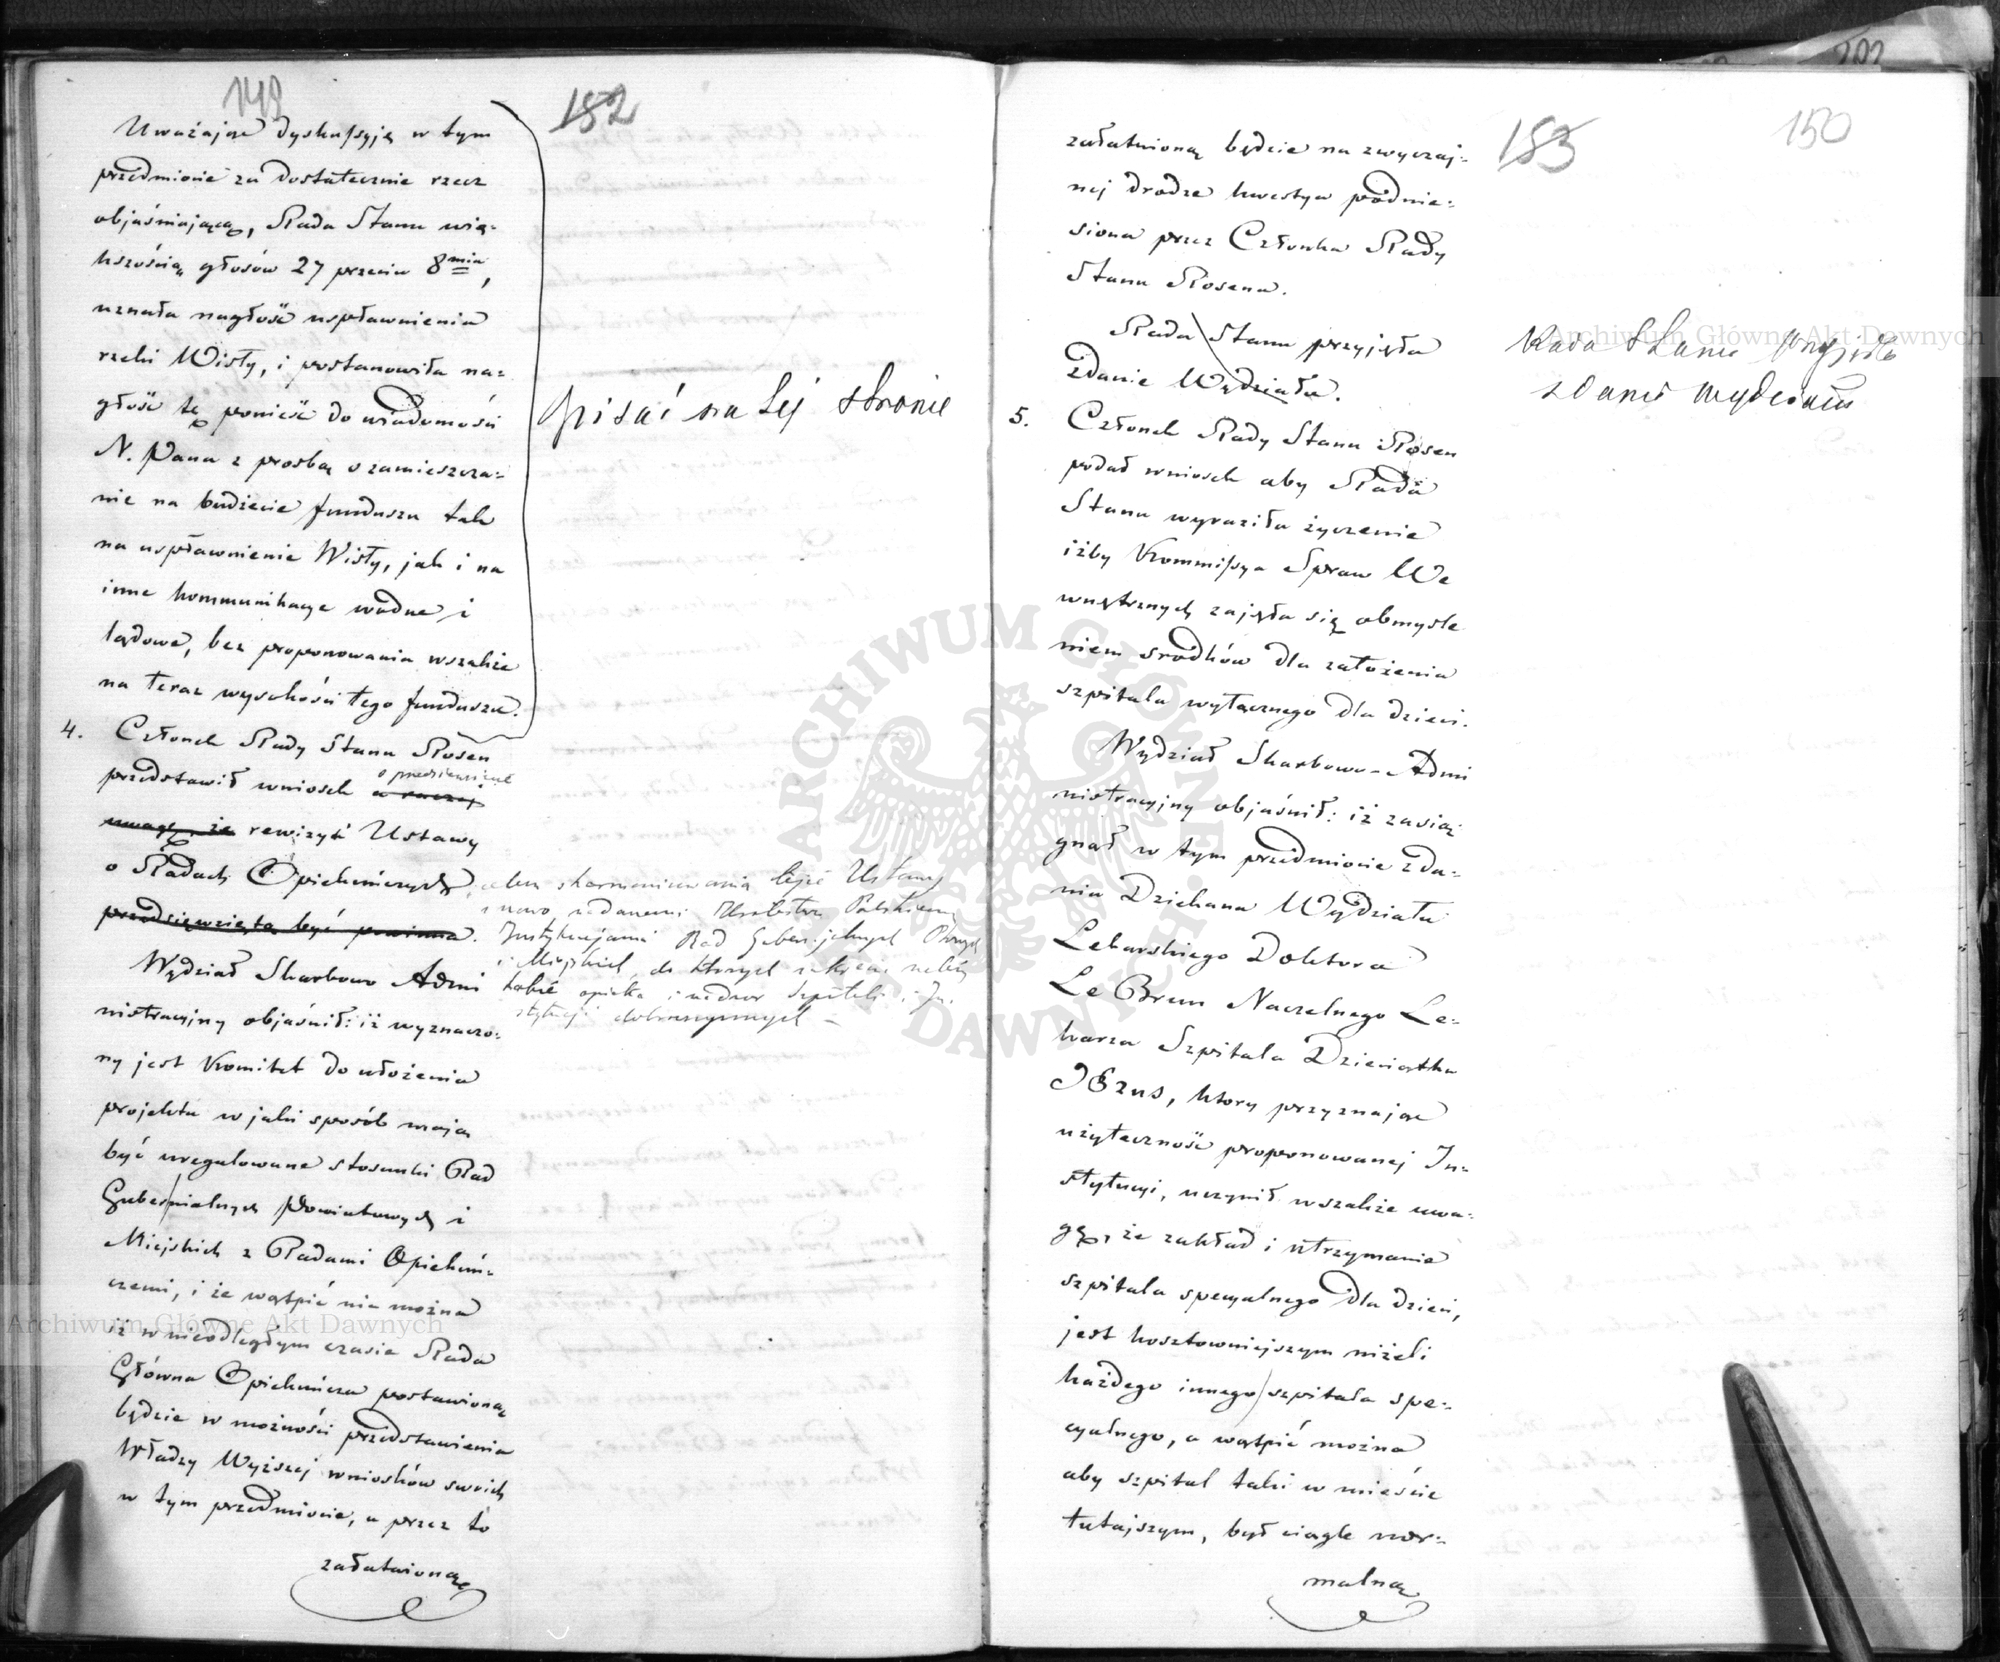 149
152
Uważając dyskussyję w tym
przedmiocie za dostatecznie rzecz
objaśniającą, Rada Stanu wię-
kszością głosów 27 przeciw 8mia,
uznała nagłość uspławnienia
rzeki Wisły, i postanowiła na-
głość tę ponieść do wiadomości
N. Pana z prośbą o zamieszcza-
nie na budżecie funduszu tak
na uspławnienie Wisły, jak i na
inne kommunikacye wodne i
lądowe, bez proponowania wszakże
na teraz wysokości tego funduszu.
pisać na tej stronie
4. Członek Rady Stanu Rosen
przedstawił wniosek a raczej
o przedsięwzięcie
uwagę że rewizyi Ustawy
o Radach Opiekuńczych,
przedsięwziętą być powinna.
celem skarmonizowania tejże Ustawy
z nowo nadanemi Królestwu Polskiemu
Instytucjami Rad Gubernijalnych Powiat
i Miejskich, do których zakresu należy
także opieka i nadzór Szpitali i In-
stytucji dobroczynnych –
Wydział Skarbowo Admi
nistracyjny objaśnił: iż wyznaczo-
ny jest Komitet do ułożenia
projektu w jaki sposób mają
być uregulowane stosunki Rad
Gubernialnych Powiatowych i
Miejskich z Radami Opiekuń-
czemi, i że wątpić nie można
iż w nieodległym czasie Rada
Główna Opiekuńcza postawioną
będzie w możności przedstawienia
Władzy Wyższej wniosków swoich
w tym przedmiocie, a przez to
załatwioną
202
153
150
załatwioną będzie na zwyczaj-
nej drodze kwestya podnie-
siona przez Członka Rady
Stanu Rosena.
Rada Stanu przyjęła
zdanie Wydziału.
Rada Stanu przyjęła
zdanie Wydziału
5. Członek Rady Stanu Rosen
podał wniosek aby Rada
Stanu wyraziła życzenie
iżby Kommissya Spraw We
wnętrznych zajęła się obmyśle
niem srodków dla założenia
szpitala wyłącznego dla dzieci.
Wydział Skarbowo-Admi
nistracyjny objaśnił: iż zasią
gnął w tym przedmiocie zda-
nia Dziekana Wydziału
Lekarskiego Doktora
Le Brun Naczelnego Le-
karza Szpitala Dzieciątka
JEzus, ktory przyznając
użyteczność proponowanej In-
stytucyi, uczynił wszakże uwa-
gę, że zakład i utrzymanie
szpitala specyalnego dla dzieci,
jest kosztowniejszym niżeli
każdego innego szpitala spe-
cyalnego, a wątpić można
aby szpital taki w mieście
tutajszym, był ciągle nor-
malną
Archiwum Główne Akt Dawnych
Archiwum Główne Akt Dawnych
ARCHIWUM GŁÓWNE AKT DAWNYCH